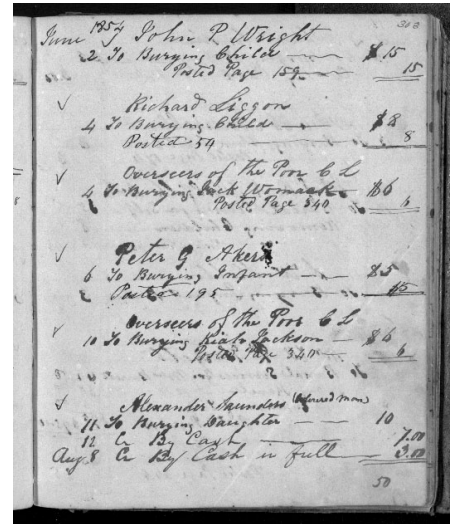 June 1857 John P Wright
2 To Burying Child $15
Posted Page 159 15
✓ Richard Liggon
4 To Burying Child $8
Posted 54 8
✓ Overseers of the Poor C L
4 To Burying Jack Womack $6
Posted Page 340 6
✓ Peter G Akers
6 To Burying Infant $5
Posted 195 $5
✓ Overseers of the Poor C L
10 To Burying Jackson $6
Posted Page 340 6
✓ Alexander Saunders (Colored man)
11 To Burying Daughter 10
12 Cr By Cash 7.00
Aug 8 Cr By Cash in full 3.00
50